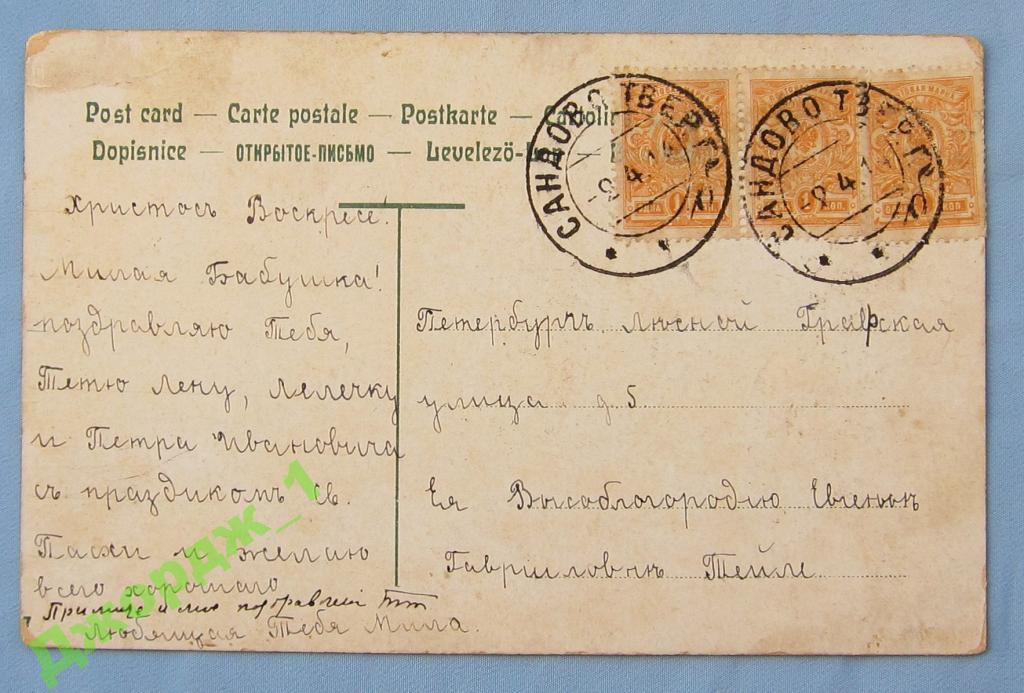 Post card — Carte postale — Postkarte —
Dopisnice — ОТКРЫТОЕ-ПИСЬМО — Levelező-
САНДОВО ТВЕР. Г.
САНДОВО ТВЕР. Г.
Христосъ Воскресе!
Милая Бабушка!
поздравляю Тебя,
Тетю Лену, Лелечку
и Петра Ивановича
съ праздикомъ Св.
Пасхи и желаю
всего хорошаго
любящая Тебя Мила.
Петербургъ Лѣсной Графская
улица д. 5.
Ея Высоблогородію Евгеніи
Гавриловнѣ Тейле
Джордж_1